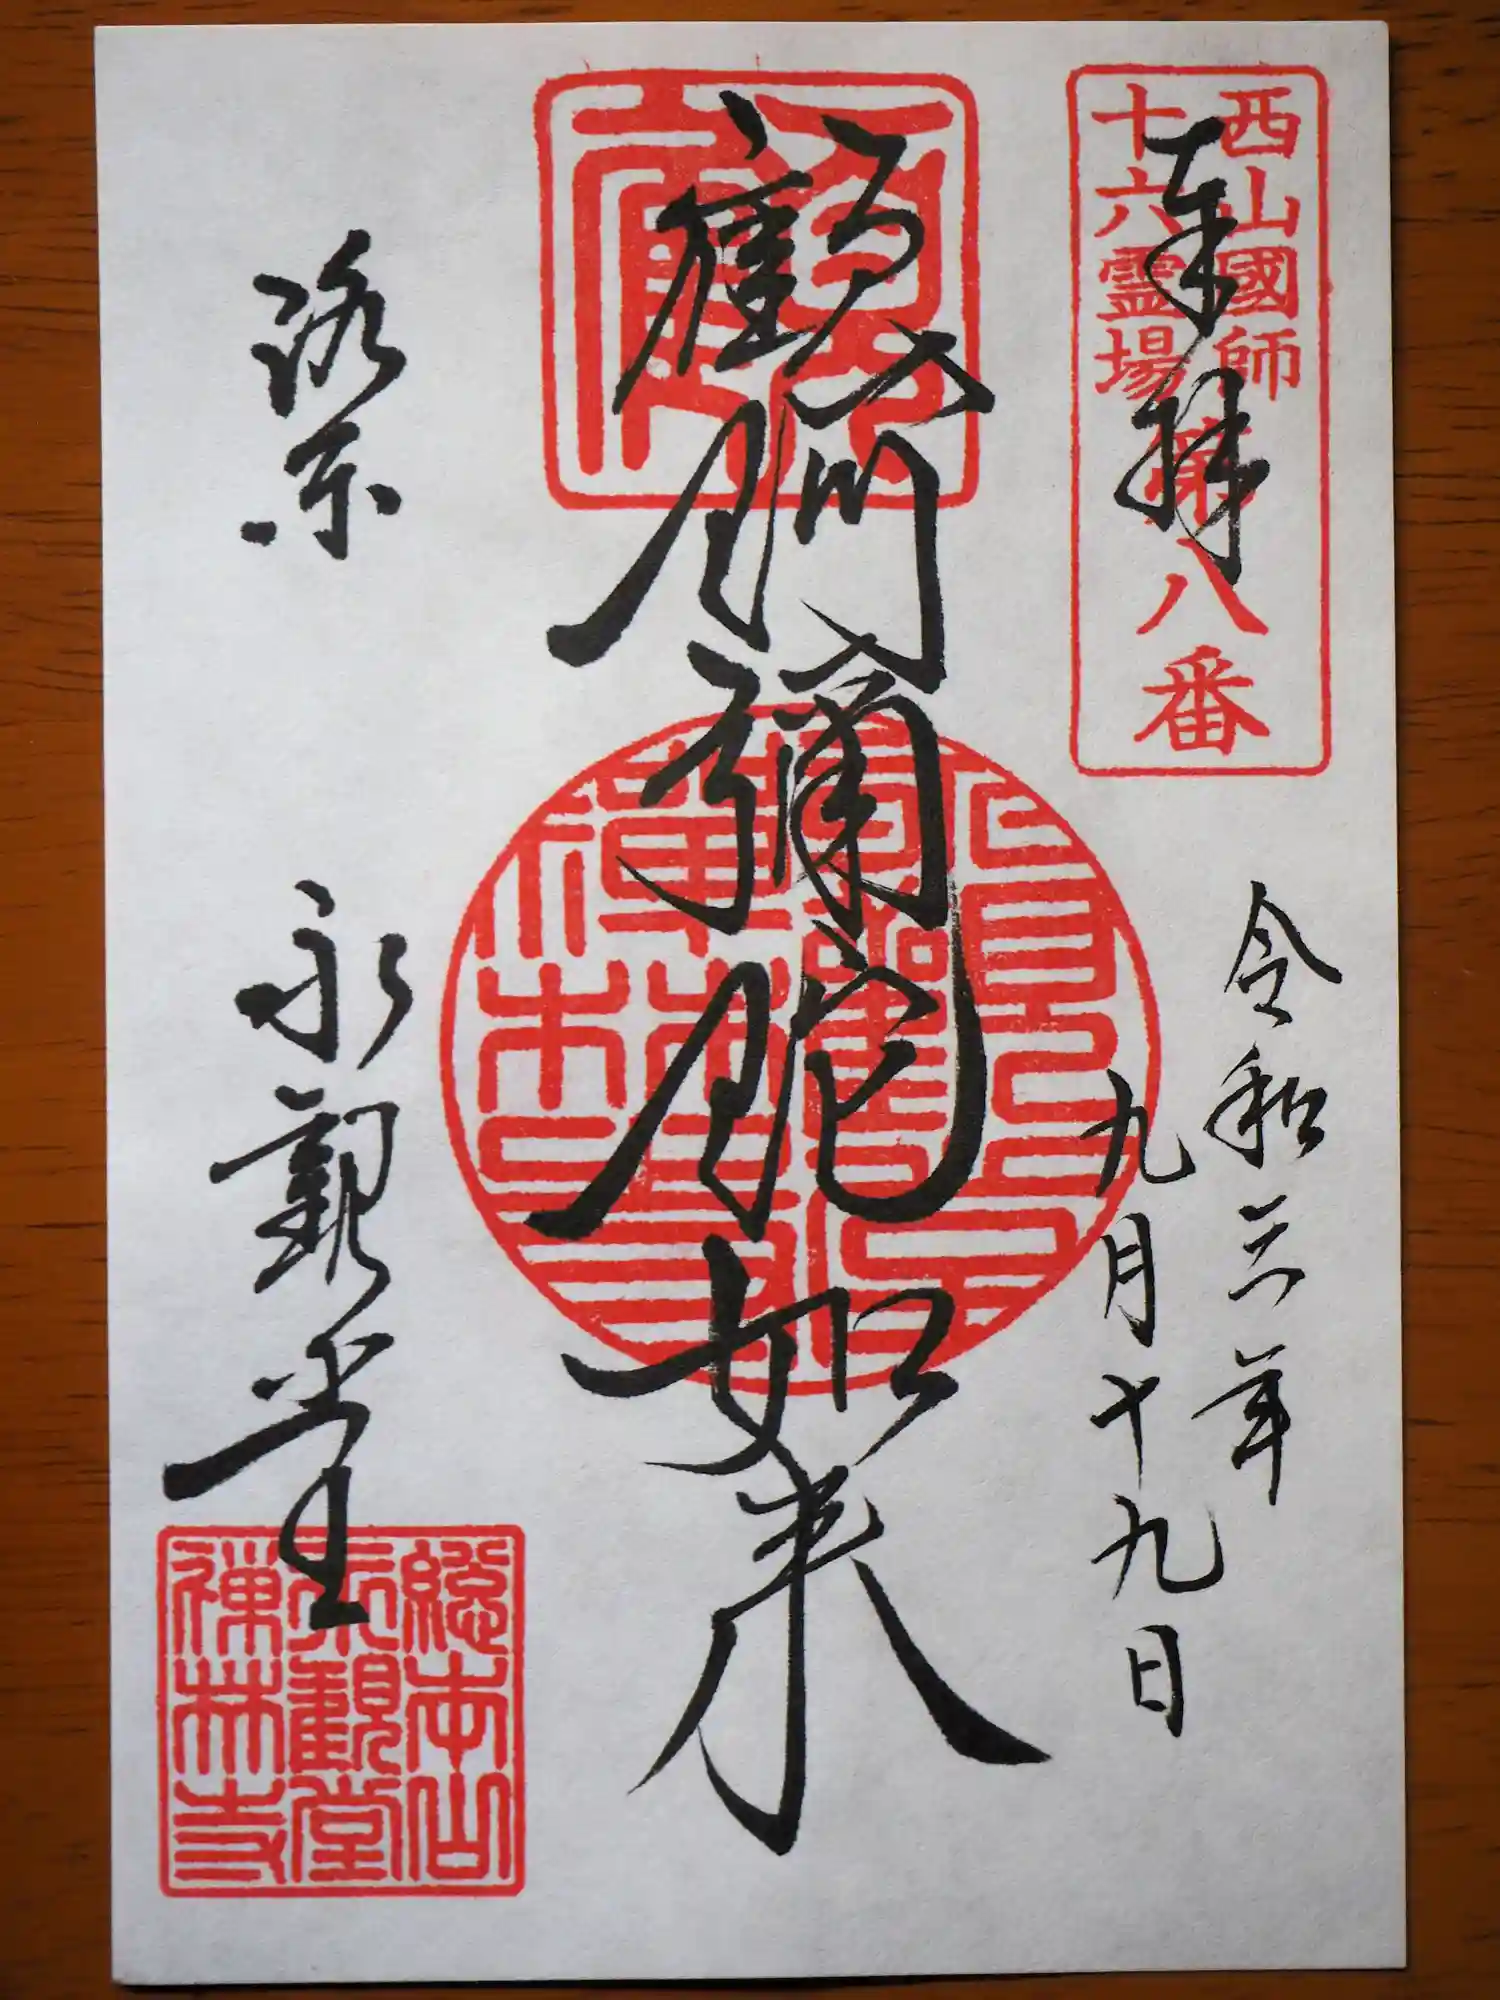 西山國師
十六霊場
第八番
奉拝
令和三年
九月十九日
顧阿彌陀如来
洛東 永観堂
総本山
永観堂
禅林寺